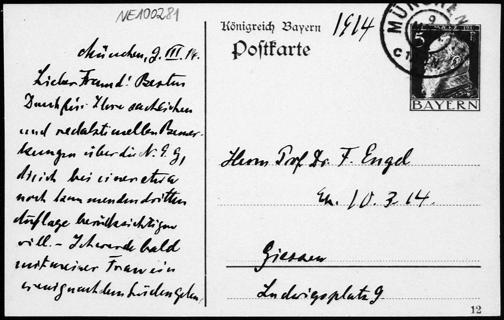 NE100281
Königreich Bayern
1914
Postkarte
MÜNCHEN
9
5
BAYERN
München, 9. III. 14.
Lieber Freund! Besten
Dank für Ihre sachlichen
und redaktionellen Bemer-
kungen über die N. E. G,
die ich bei einer etwa
noch kommenden dritten
Auflage berücksichtigen
will. - Ich werde bald
mit meiner Frau ein
wenig nach dem Süden gehen,
Herrn Prof. Dr. F. Engel
Em. 10.3.14.
Giessen
Ludwigsplatz 9
12